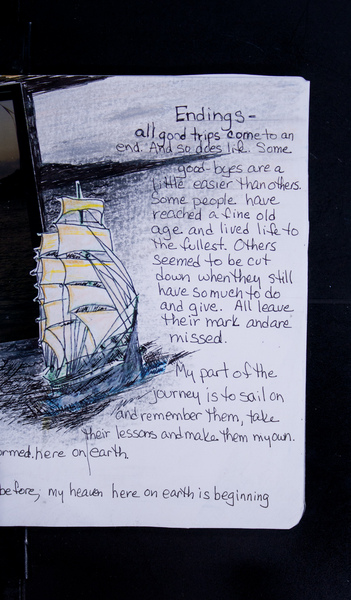 Endings-
all good trips come to an
end. And so does life. Some
good-byes are a
little easier than others.
Some people have
reached a fine old
age and lived life to
the fullest. Others
seemed to be cut
down when they still
have so much to do
and give. All leave
their mark and are
missed.
My part of the
journey is to sail on
and remember them, take
their lessons and make them my own.
ormed, here on earth.
before, my heaven here on earth is beginning